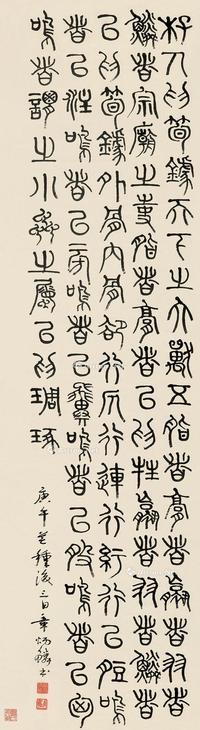 杍人為筍鐻天下之大獸五脂者膏者臝者羽者
鱗者宗廟之事脂者膏者以為牲臝者羽者鱗者
以為筍鐻外骨内骨卻行仄行連行紆行以脰鳴
者以注鳴者以旁鳴者以翼鳴者以股鳴者以匈
鳴者謂之小蟲之屬以為琱琢
庚午芒種後三日章炳麟書